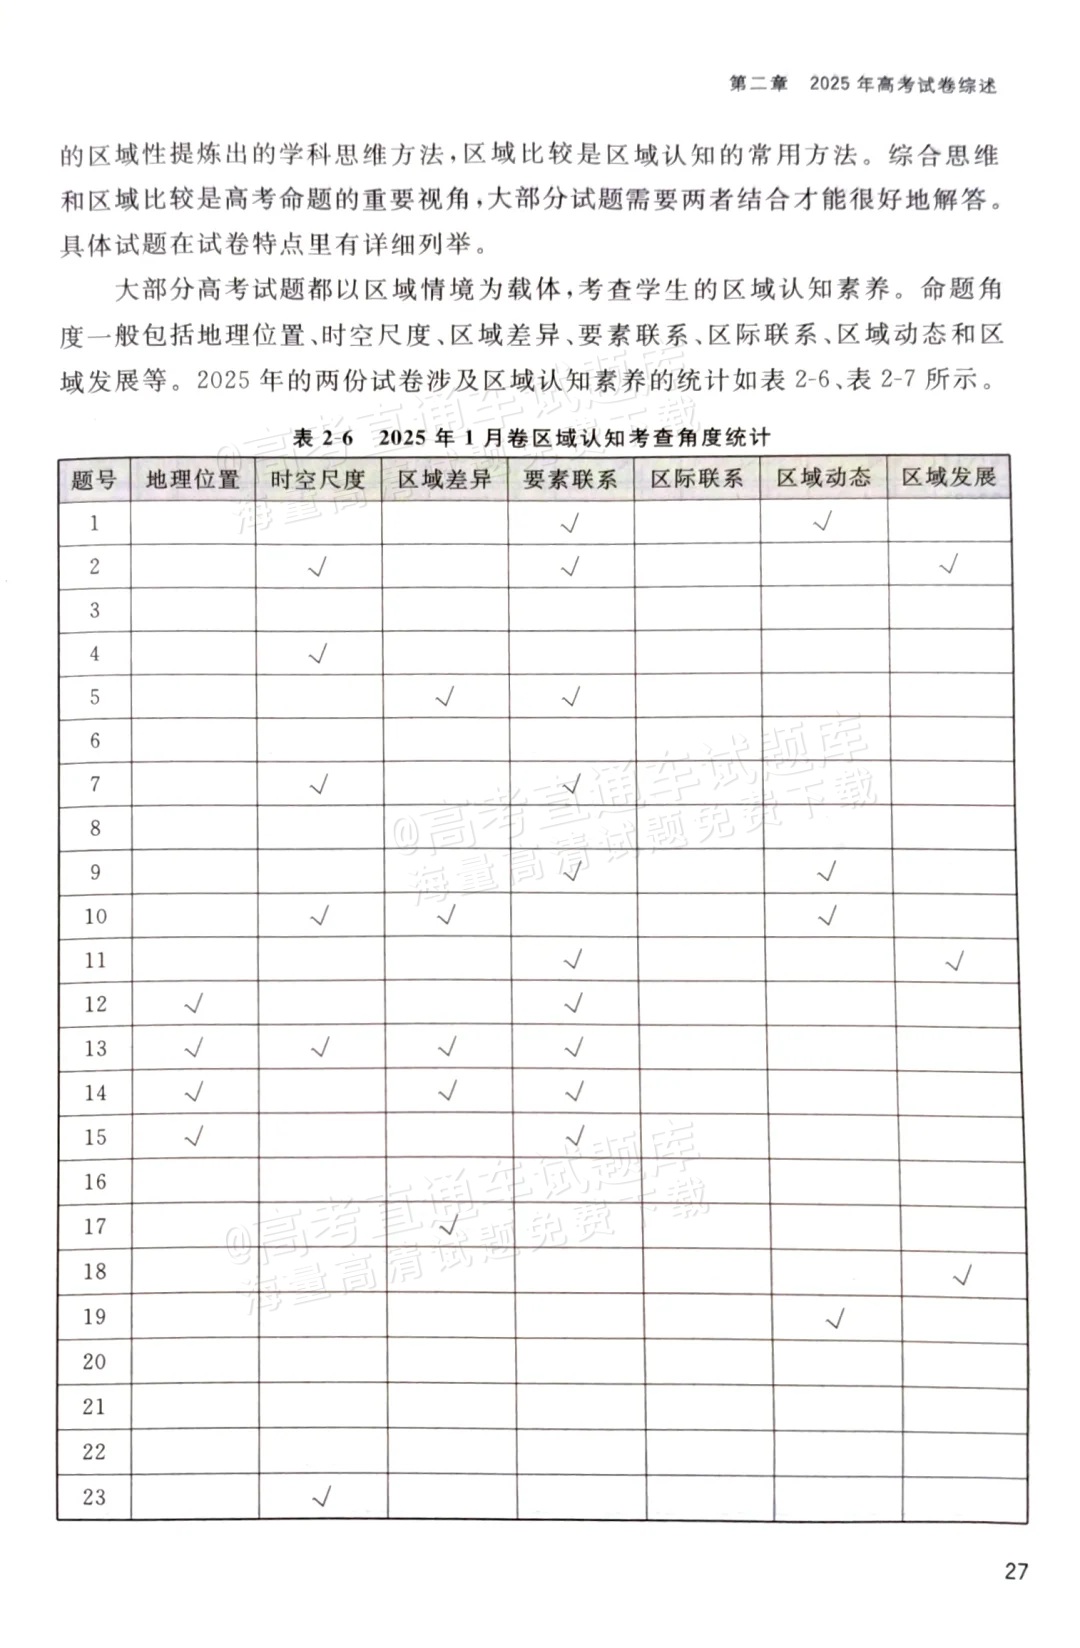 第二章 2025年高考试卷综述
的区域性提炼出的学科思维方法,区域比较是区域认知的常用方法。综合思维
和区域比较是高考命题的重要视角,大部分试题需要两者结合才能很好地解答。
具体试题在试卷特点里有详细列举。
大部分高考试题都以区域情境为载体,考查学生的区域认知素养。命题角
度一般包括地理位置、时空尺度、区域差异、要素联系、区际联系、区域动态和区
域发展等。2025年的两份试卷涉及区域认知素养的统计如表2-6、表2-7所示。
表2-6 2025年1月卷区域认知考查角度统计
题号 地理位置 时空尺度 区域差异 要素联系 区际联系 区域动态 区域发展
1 √ √
2 √ √ √
3
4 √
5 √ √
6
7 √ √
8
9 √ √
10 √ √ √
11 √ √
12 √ √
13 √ √ √ √
14 √ √ √
15 √ √
16
17 √
18 √
19 √
20
21
22
23 √
@高考直通车试题库
海量高清试题免费下载
@高考直通车试题库
海量高清试题免费下载
@高考直通车试题库
海量高清试题免费下载
27